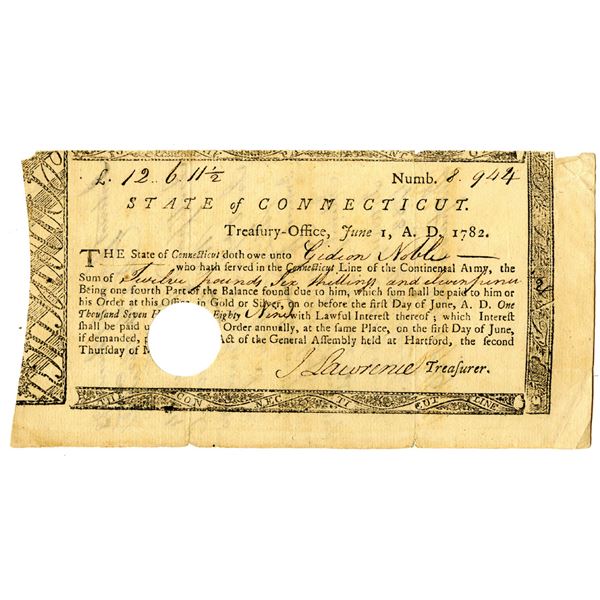 £. 12. 6. 11½ Numb. 8.944
STATE of CONNECTICUT.
Treasury-Office, June 1, A. D. 1782.
THE State of Connecticut doth owe unto Gideon Noble
who hath served in the Connecticut Line of the Continental Army, the
Sum of Twelve pounds Six Shillings and
Being one fourth Part of the Balance found due to him, which sum shall be paid to him or
his Order at this Office, in Gold or Silver, on or before the first Day of June, A. D. One
Thousand Seven H Eighty Nine with Lawful Interest thereof; which Interest
shall be paid u Order annually, at the same Place, on the first Day of June,
if demanded, p Act of the General Assembly held at Hartford, the second
Thursday of M
J Lawrence Treasurer.
THE CON NEC TI CUT LINE